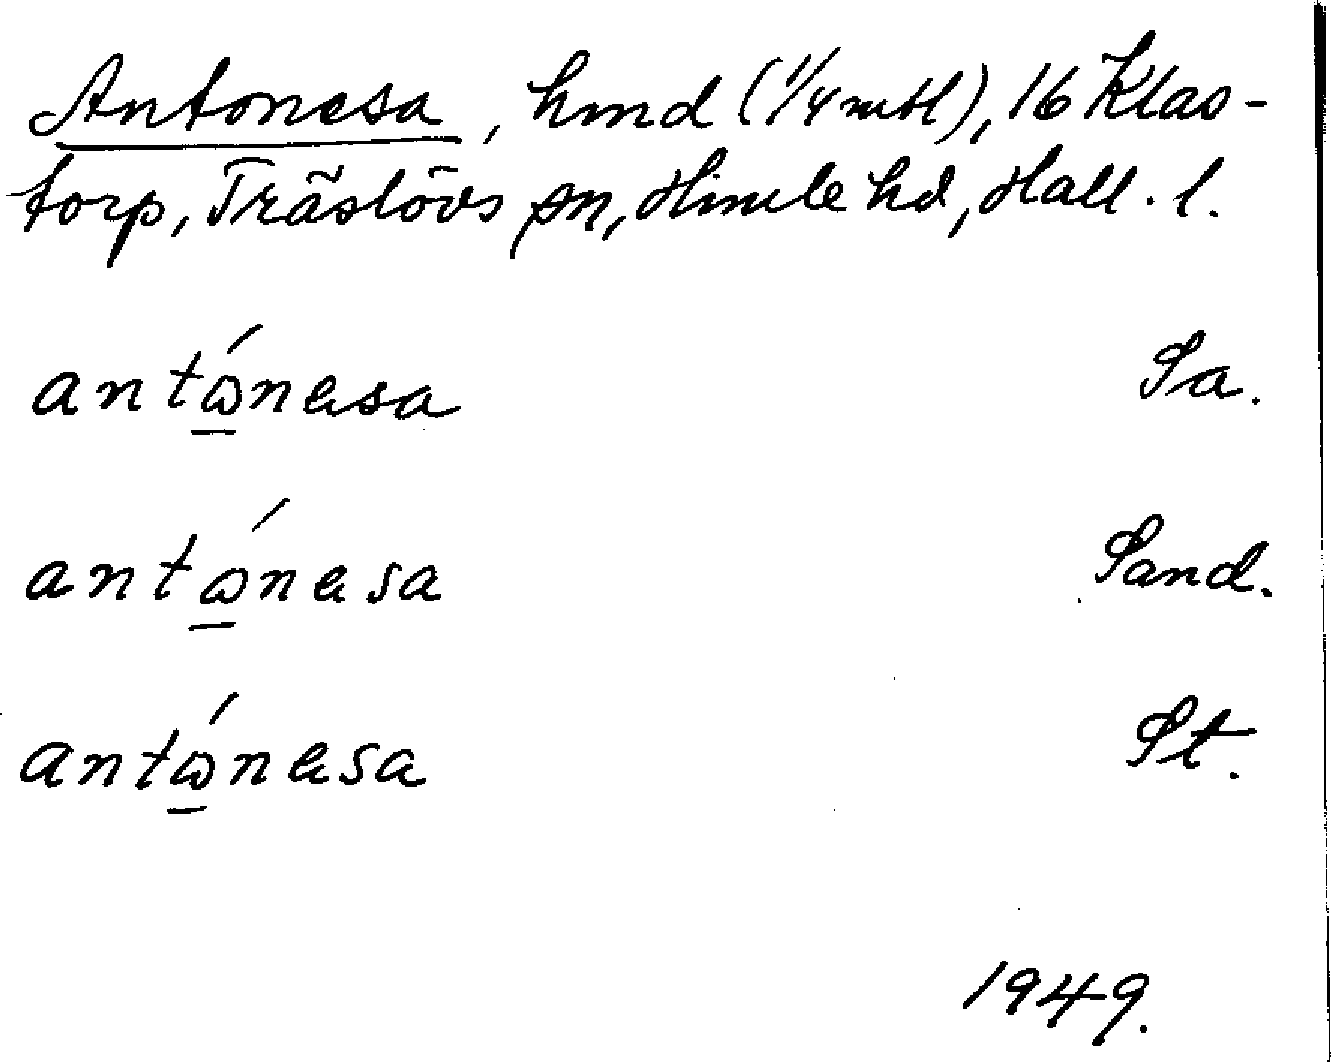 Antonesa, hmd (1/4 mtl), 16 Klas-
torp, Träslövs sn, Himle hd, Hall. l.
antώ̲nesa Sa.
antώ̲nesa Sand.
antώ̲nesa St.
1949.